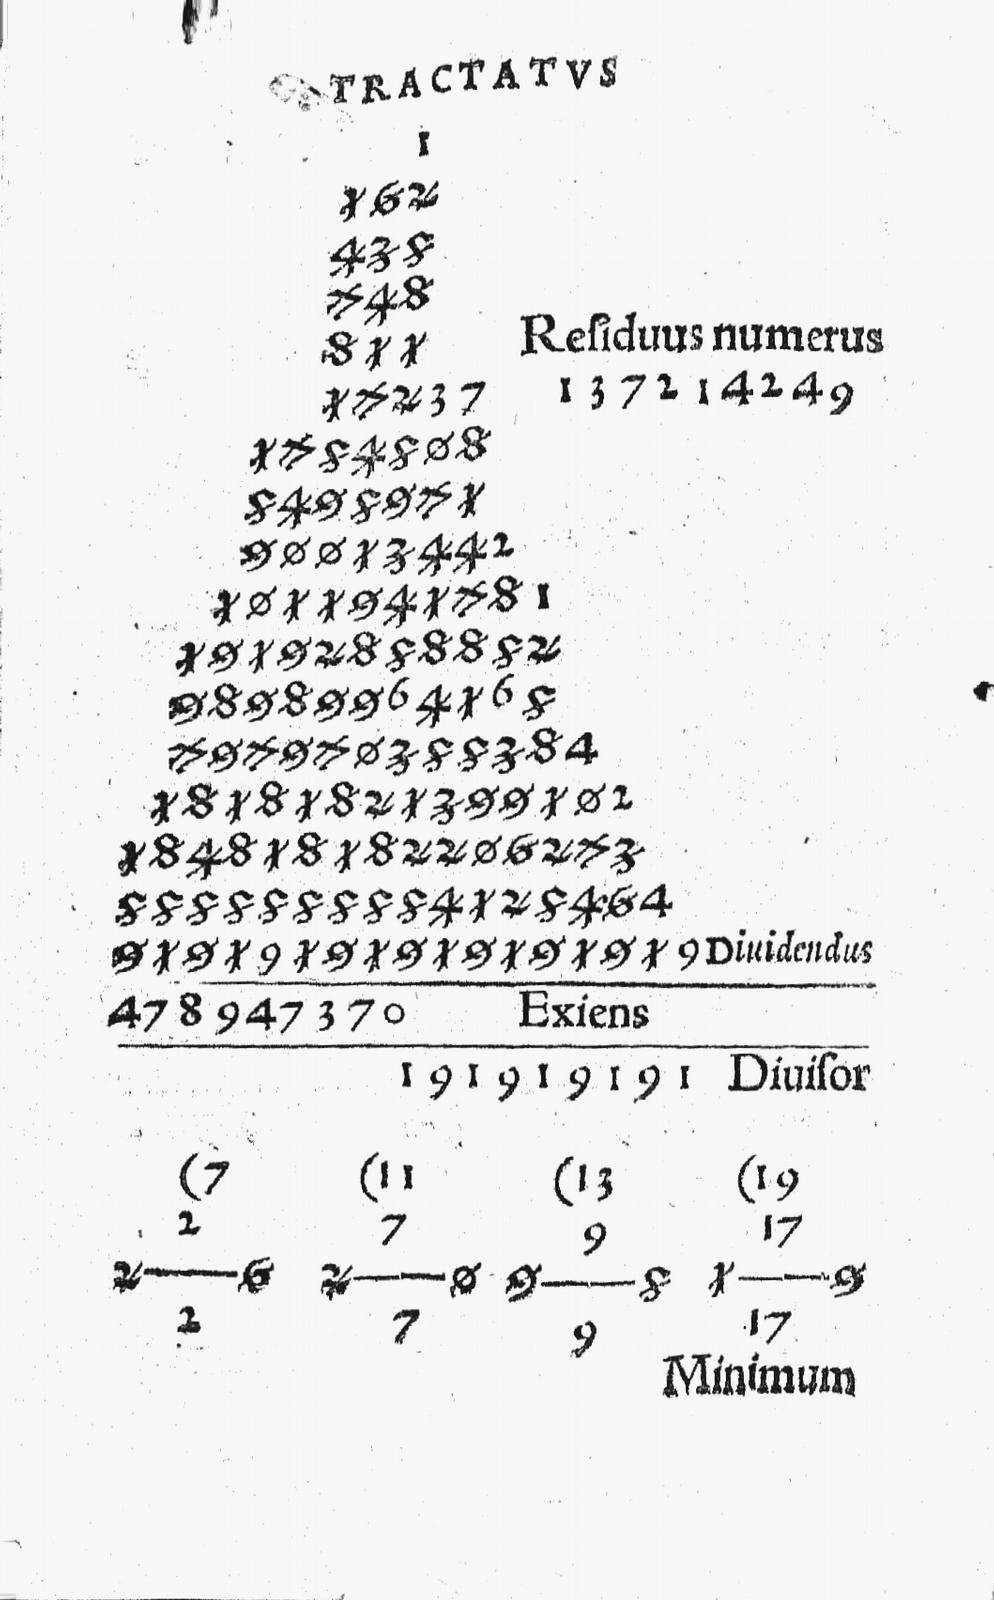 TRACTATVS
1
162
435
748
811
17237
Reſiduus numerus
137214249
1754508
5495971
90013442
1011941781
19192858852
98989964165
797970355384
18181821399102
184818182206273
5555555554125464
91919191919191919 Diuidendus
478947370 Exiens
191919191 Diuiſor
(7 (11 (13 (19
2 7 9 17
2——6 2——0 9——5 1——9
2 7 9 17
Minimum